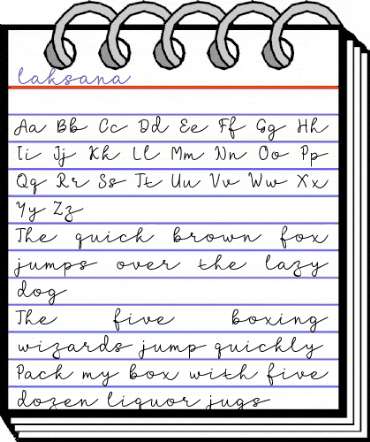 laksana
Aa Bb Cc Dd Ee Ff Gg Hh
Ii Jj Kk Ll Mm Nn Oo Pp
Qq Rr Ss Tt Uu Vv Ww Xx
Yy Zz
The quick brown fox
jumps over the lazy
dog
The five boxing
wizards jump quickly
Pack my box with five
dozen liquor jugs